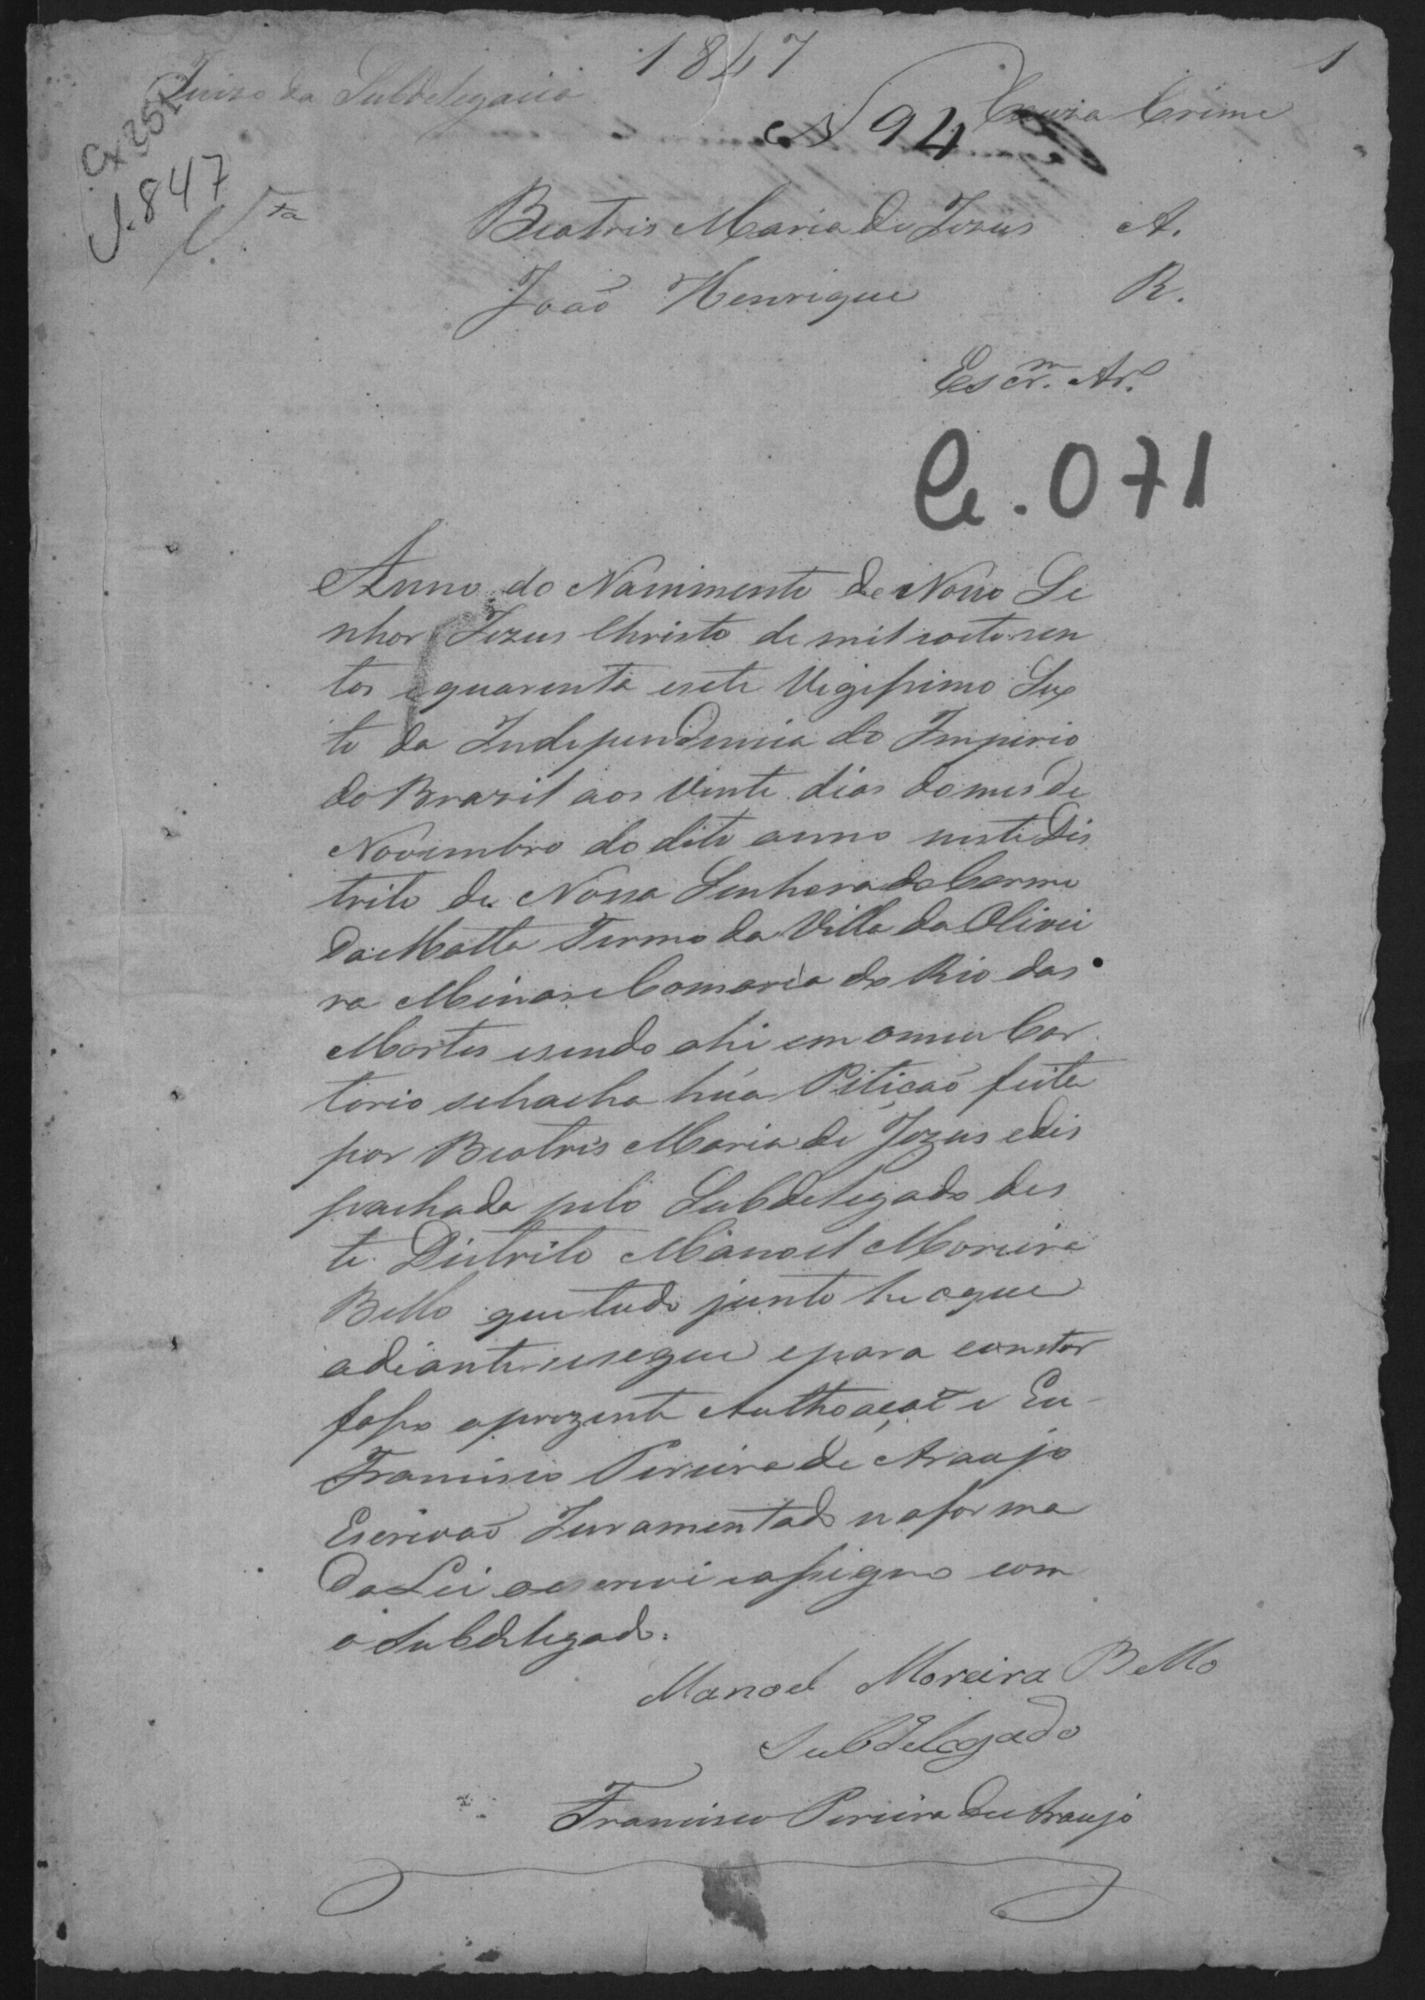 1847
1
Juizo da Subdelegacia
Cauza Crime
N 94
Cx 251
1.847
V.ta
Beatris Maria de Jezus A.
João Henrique R.
Escr.m Ar.o
Ce. 071
Anno do Nacimento de Nosso Se
nhor Jezus Christo de mil e oito sen
tos e quarenta e sete Vigessimo Sex
to da Independencia do Imperio
do Brazil aos Vinte dias do mes de
Novembro do dito anno neste Dis
trito de Nossa Senhora do Carmo
da Matta Termo da Villa da Olivei
ra Minas e Comarca do Rio das
Mortes e sendo ahi em o meu Car
torio se hacha húa Pitição feita
por Beatris Maria de Jezus e dis
pachada pelo Subdelegado des
te Distrito Manoel Moreira
Bello que tudo junto he o que
adiante se segue e para constar
fasso a prezente Authoação e Eu
Francisco Pereira de Araujo
Escrivaõ Juramentado na forma
da Lei o escrevi e assigno com
o Subdelegado.
Manoel Moreira Bello
Subdelegado
Francisco Pereira de Araujo